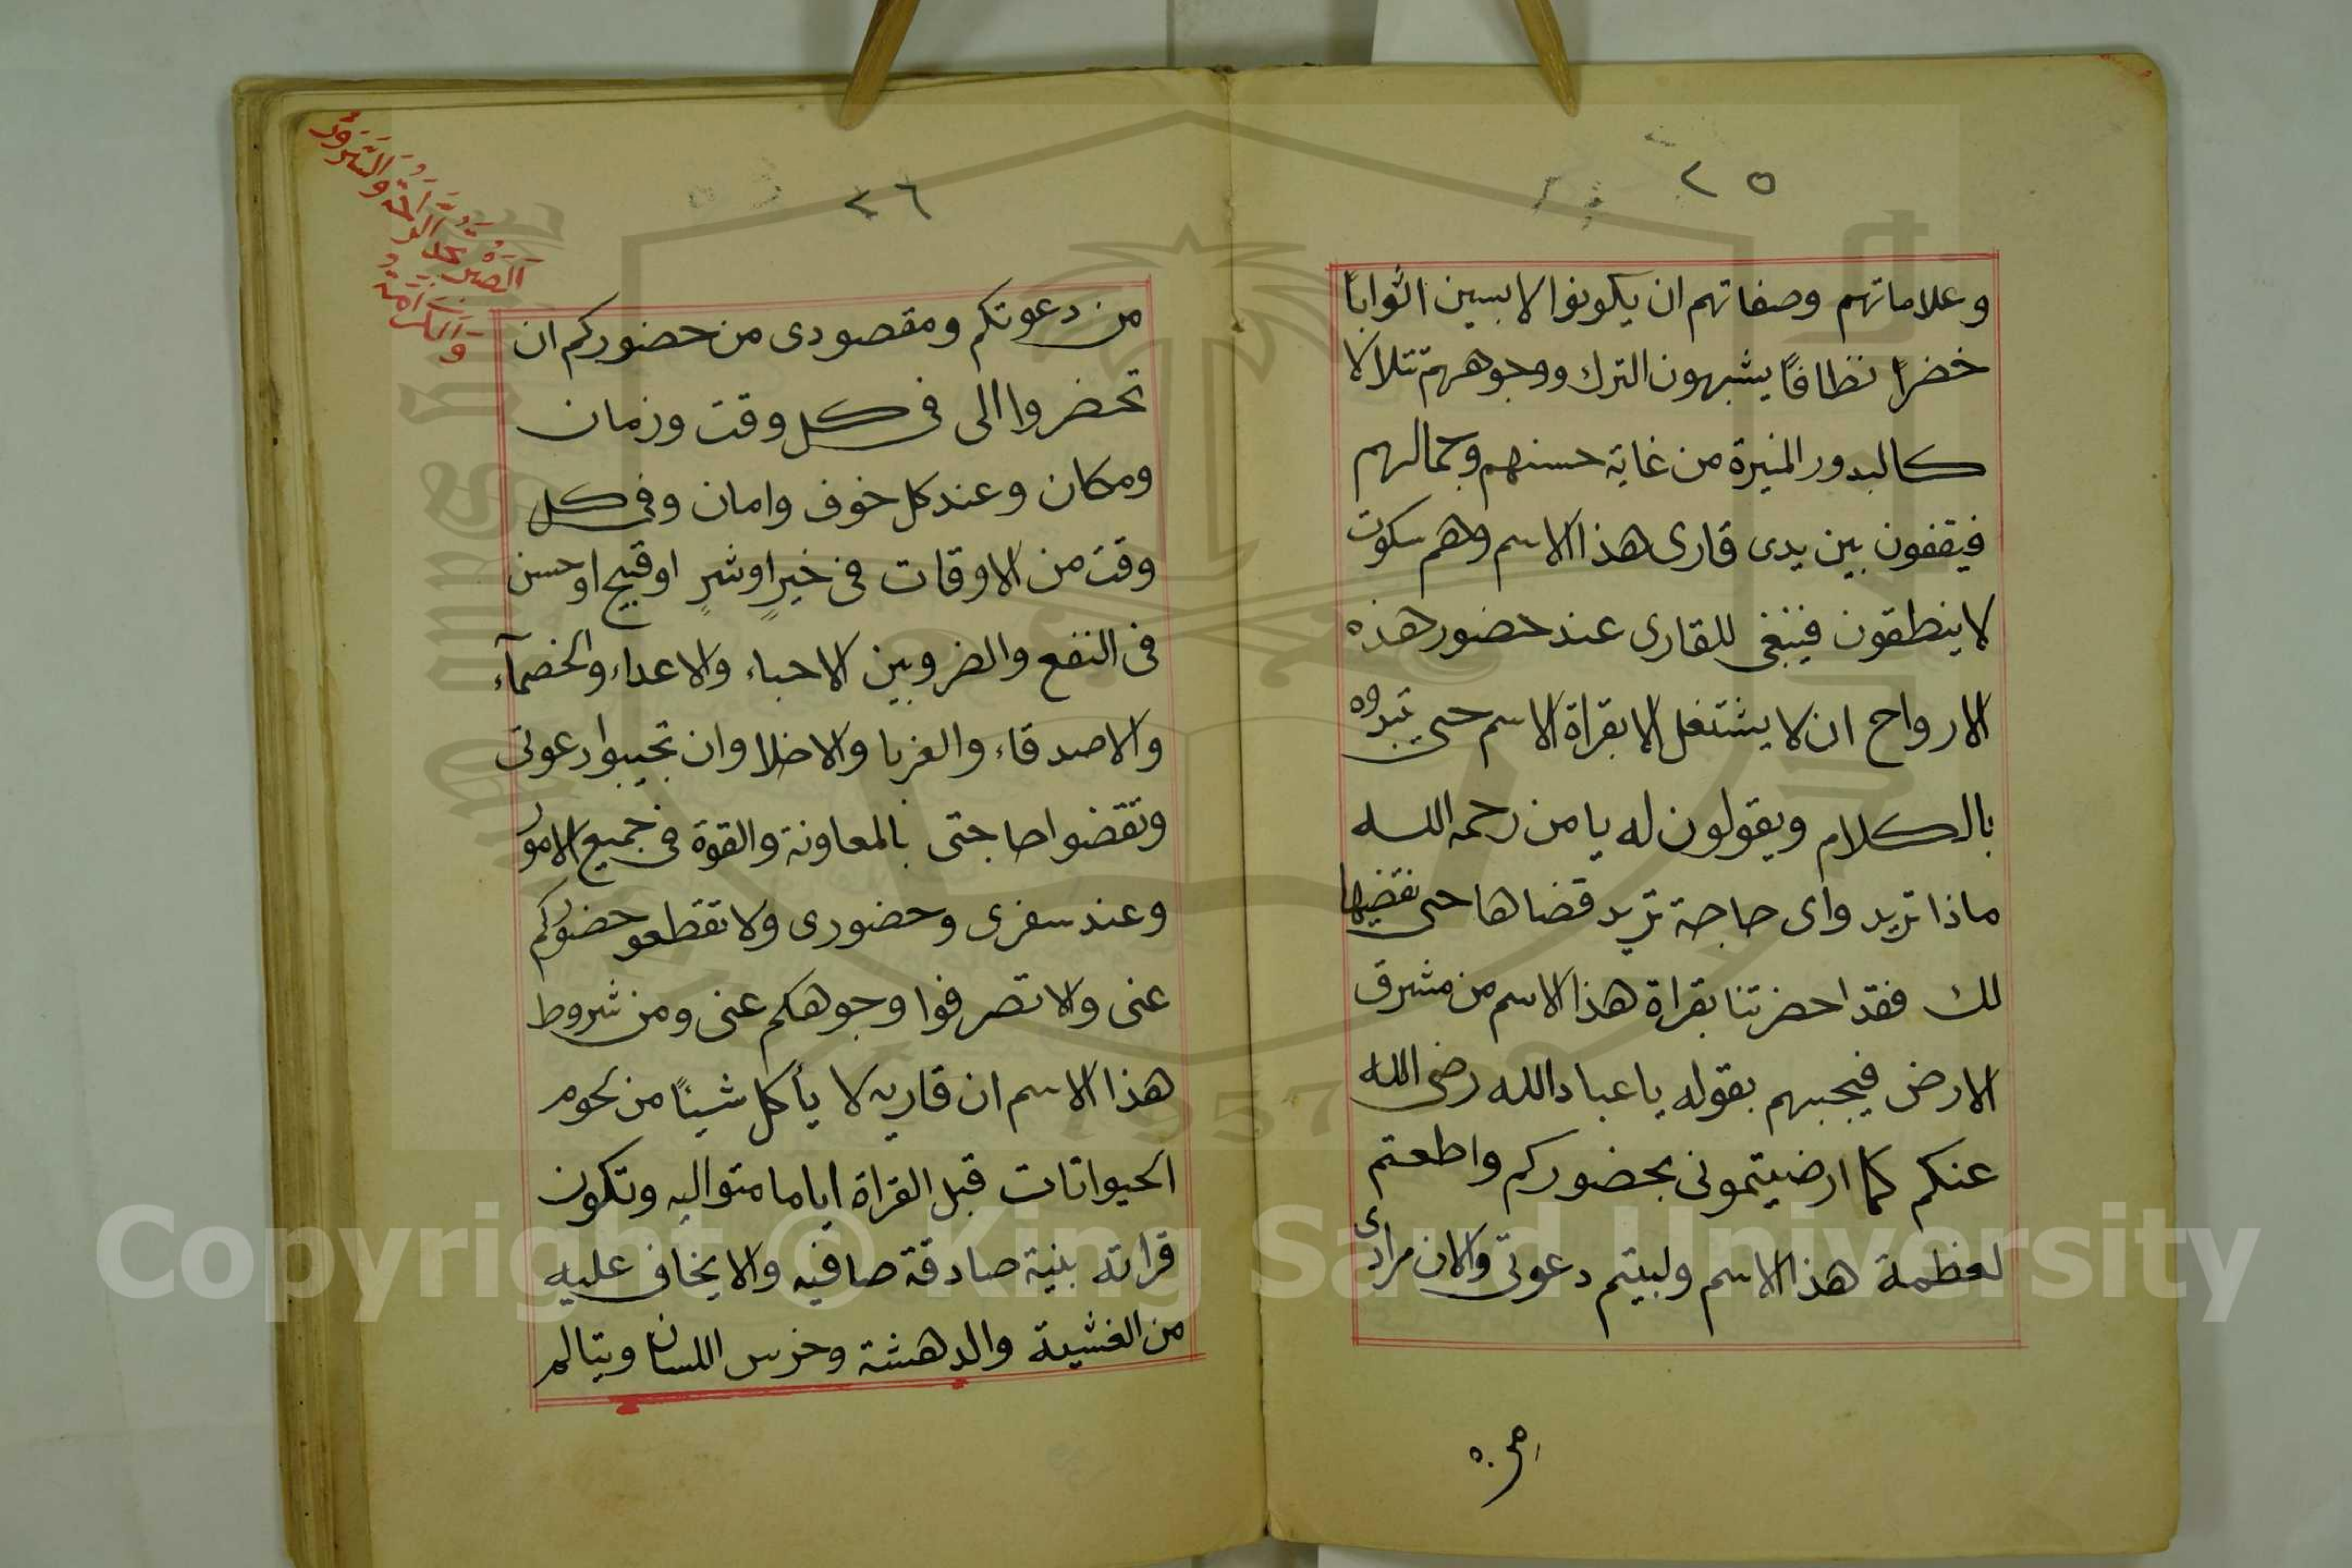 ٢٥
وعلاماتهم وصفاتهم ان يكونوا لابسين اثوابا
خضرًا نظافًا يشبهون الترك ووجوههم تتلالا
كالبدور المنيرة من غاية حسنهم وجمالهم
فيقفون بين يدى قارى هذا الاسم وهم سكوت
لا ينطقون فينبغى للقارى عند حضور هذه
الارواح ان لا يشتغل الا بقراة الاسم حتى تبدوه
بالكلام ويقولون له يا من رحمه الله
ماذا تريد واى حاجة تريد قضاها حتى نقضيها
لك فقد احضرتنا بقراة هذا الاسم من مشرق
الارض فيجبهم بقوله يا عباد الله رضى الله
عنكم كما ارضيتمونى بحضوركم واطعتم
لعظمة هذا الاسم ولبيتم دعوتى والان مرادى
٢٦
من دعوتكم ومقصودى من حضوركم ان
تحضروا الى فى كل وقت وزمان
ومكان وعند كل خوف وامان وفى كل
وقت من الاوقات فى خيرٍ او شرٍ او قبيح او حسن
فى النفع والضر وبين الاحباء والاعداء والخصمآء
والاصدقاء والغربا والاخلا وان تجيبوا دعوتى
وتقضوا حاجتى بالمعاونة والقوة فى جميع الامور
وعند سفرى وحضورى ولا تقطعو حضوركم
عنى ولا تصرفوا وجوهكم عنى ومن شروط
هذا الاسم ان قاريه لا يأكل شيئًا من لحوم
الحيوانات قبل القراة اياما متواليه وتكون
قراته بنية صادقة صافيه والا يخاف عليه
من الغشية والدهشة وخرس اللسان ويتالم
Copyright © King Saud University
1957